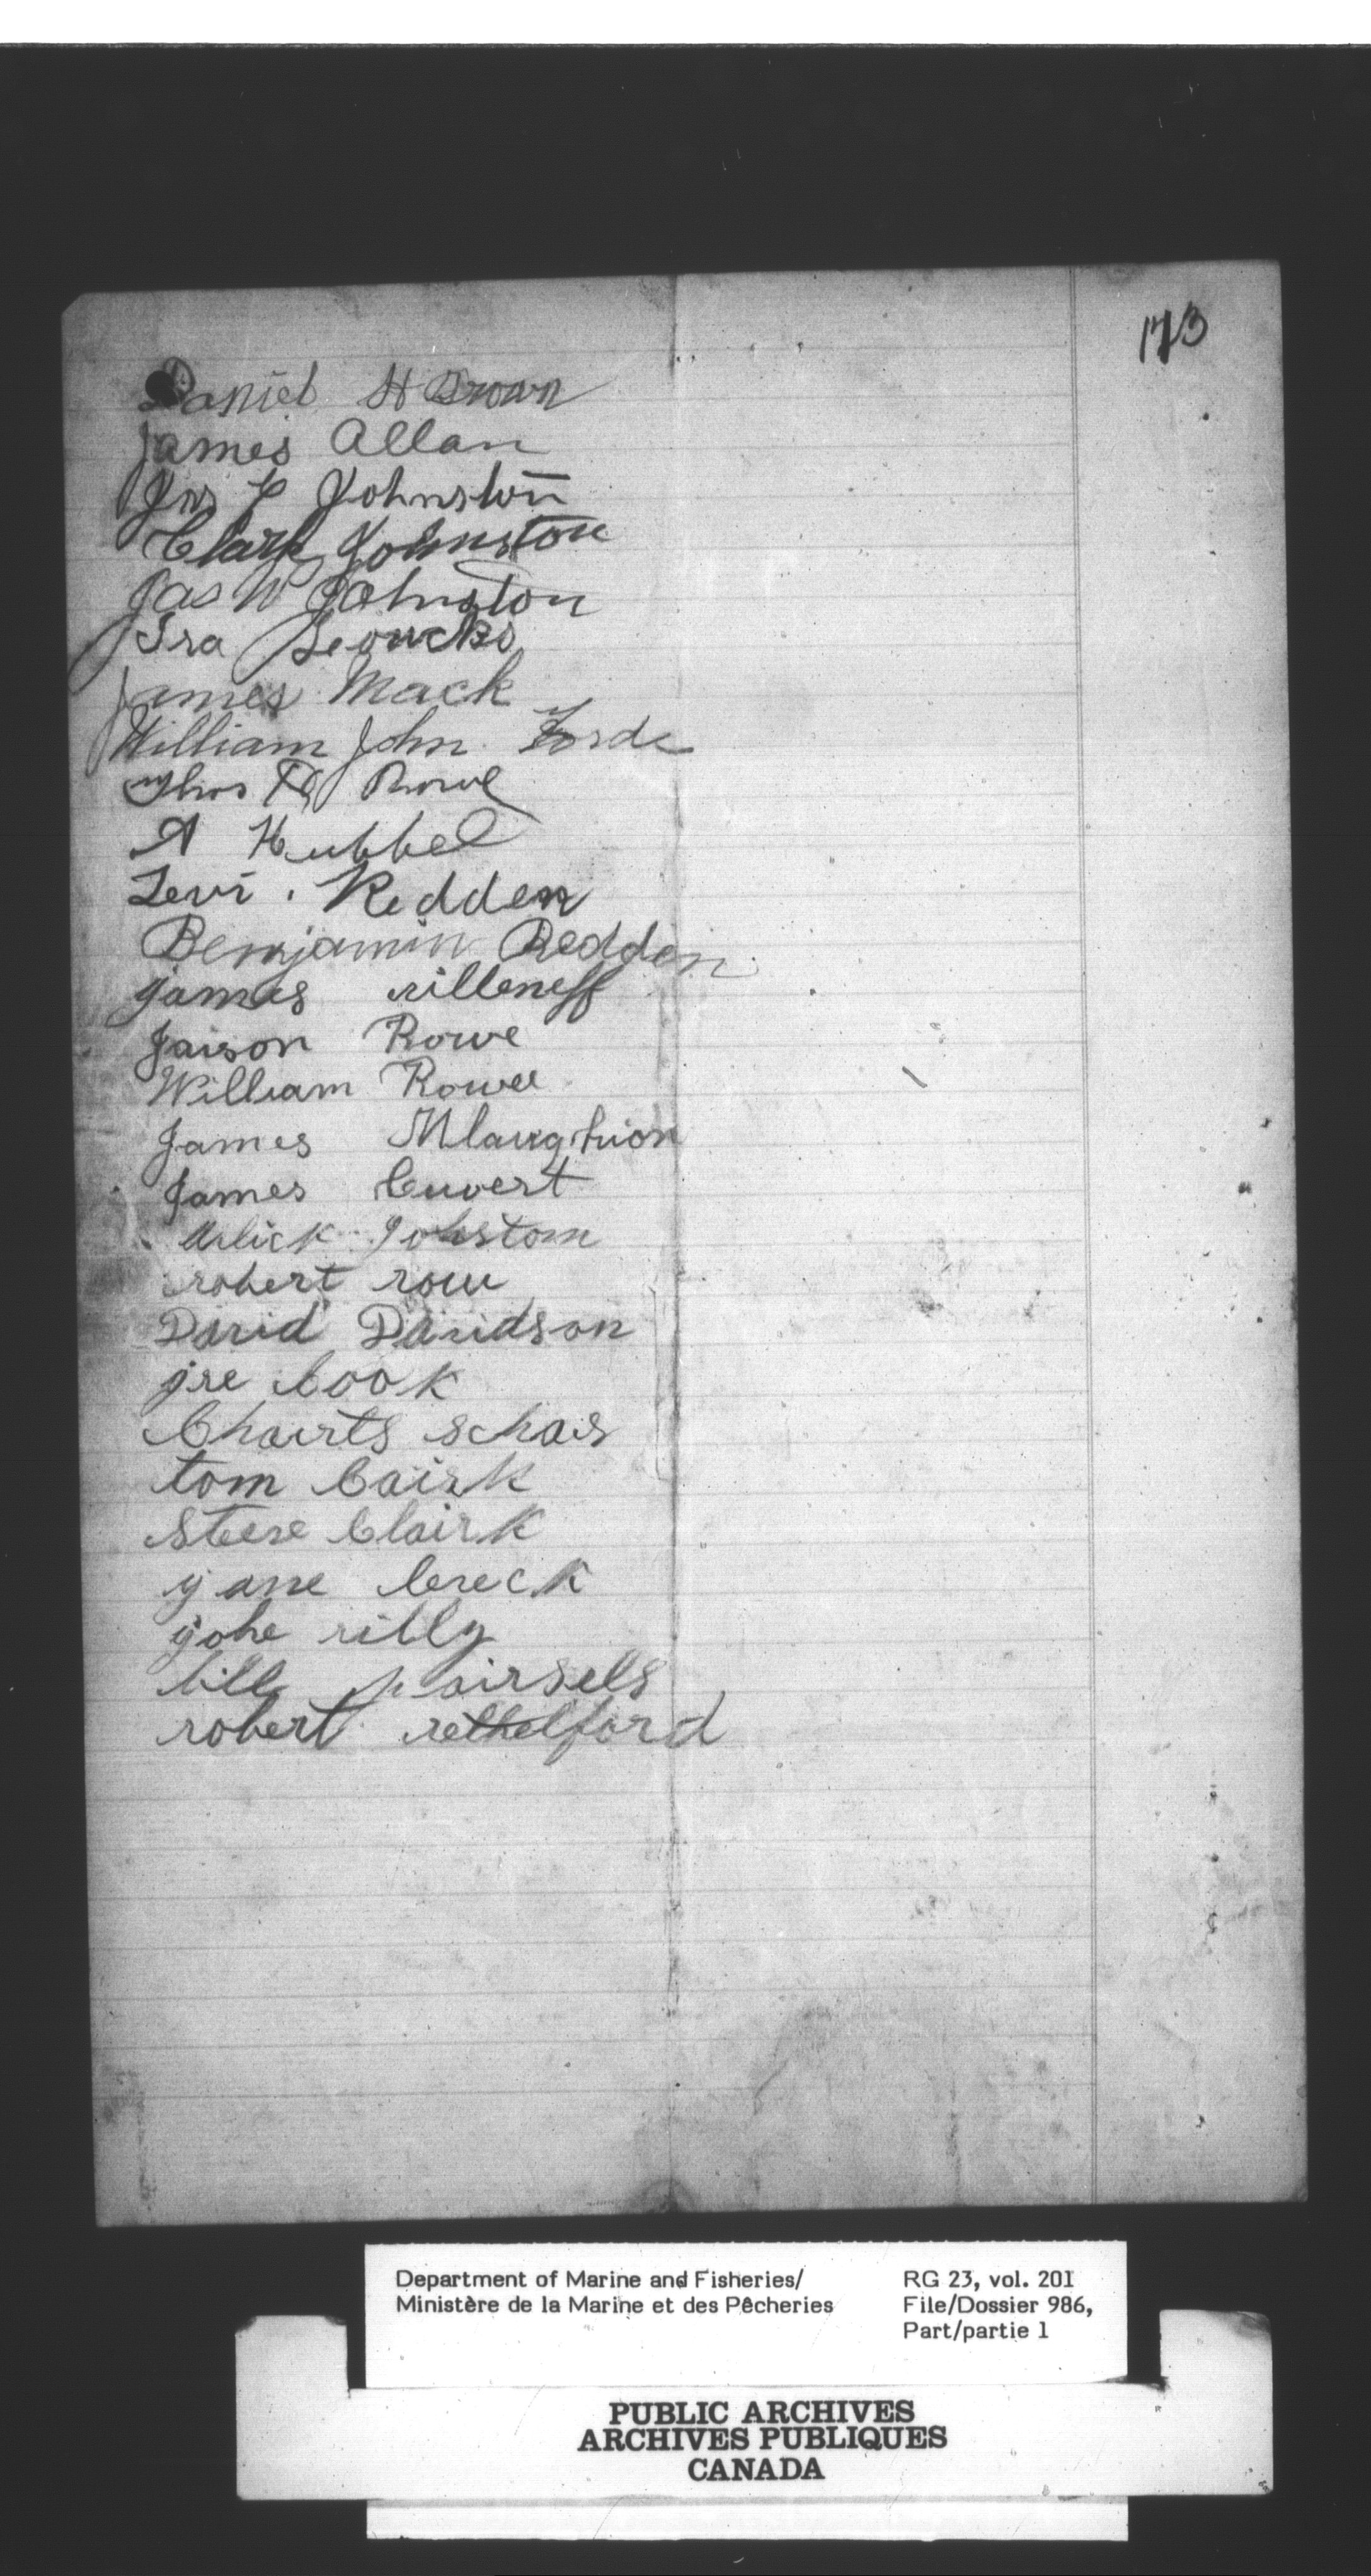 173
Daniel H Brown
James Allan
Jas E Johnston
Clark Johnston
Jas W Johnston
Ira Loucks
James Mack
William John Forde
Thos Rowe
A Hubbel
Levi . Redden
Benjamin Redden
james rilleneff
Jaison Rowe
William Rowe
James Mlaughion
James Cuvert
Alick Johstom
robert row
David Davidson
jre Cook
Chairts schais
tom Cairk
Steve Clairk
yane Creck
johe rilly
bill pairsels
robert rethelford
Department of Marine and Fisheries/ RG 23, vol. 201
Ministère de la Marine et des Pêcheries File/Dossier 986,
Part/partie 1
PUBLIC ARCHIVES
ARCHIVES PUBLIQUES
CANADA